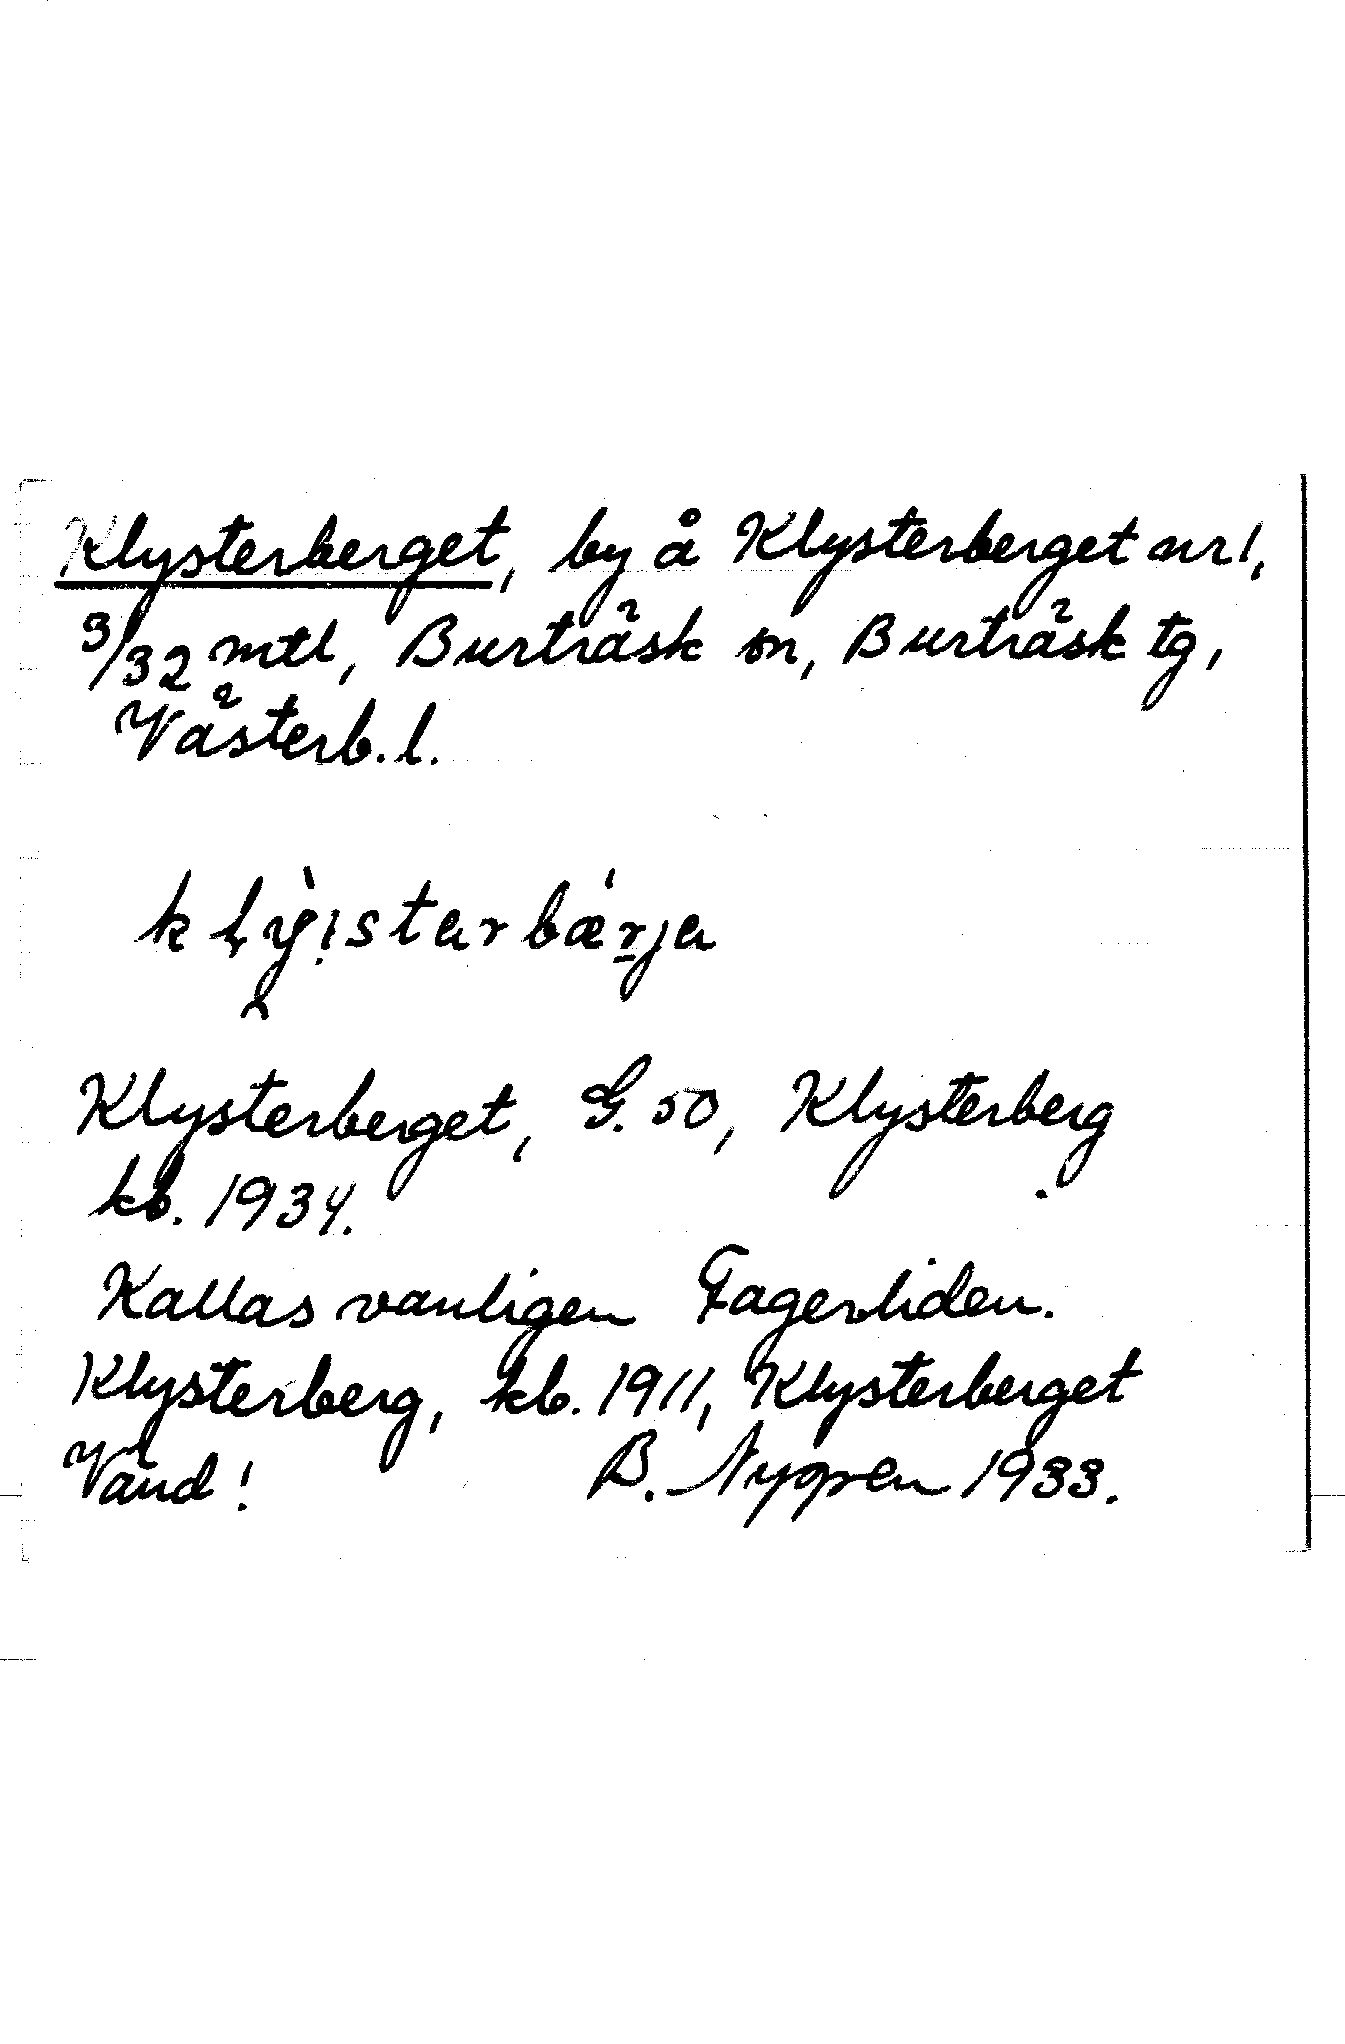 Klysterberget, by å Klysterberget nr 1,
3/32 mtl, Burträsk sn, Burträsk tg,
Västerb. l.
Klysterberget, G. 50, Klysterberg
kb. 1934.
Kallas vanligen Fagerliden.
Klysterberg, kb. 1911, Klysterberget
Vänd! B. Nygren 1933.